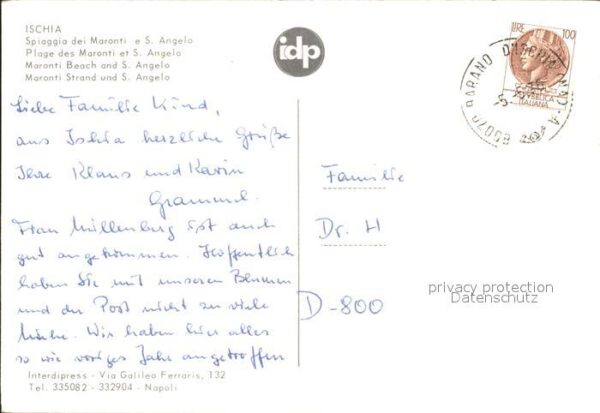 ISCHIA
Spiaggia dei Maronti e S. Angelo
Plage des Maronti et S. Angelo
Maronti Beach and S. Angelo
Maronti Strand und S. Angelo
idp
LIRE 100
REPUBBLICA
ITALIANA
80070 BARANO D'ISCHIA (NA) - A
Liebe Familie Kind,
aus Ischia herzliche Grüße
Ihre Klaus und Karin
Grammel.
Frau Müllenburg ist auch
gut angekommen. Hoffentlich
haben Sie mit unseren Blumen
und der Post nicht zu viele
Mühe. Wir haben hier alles
so wie voriges Jahr angetroffen
Familie
Dr. H
D-800
privacy protection
Datenschutz
Interdipress - Via Galileo Ferraris, 132
Tel. 335082 - 332904 - Napoli